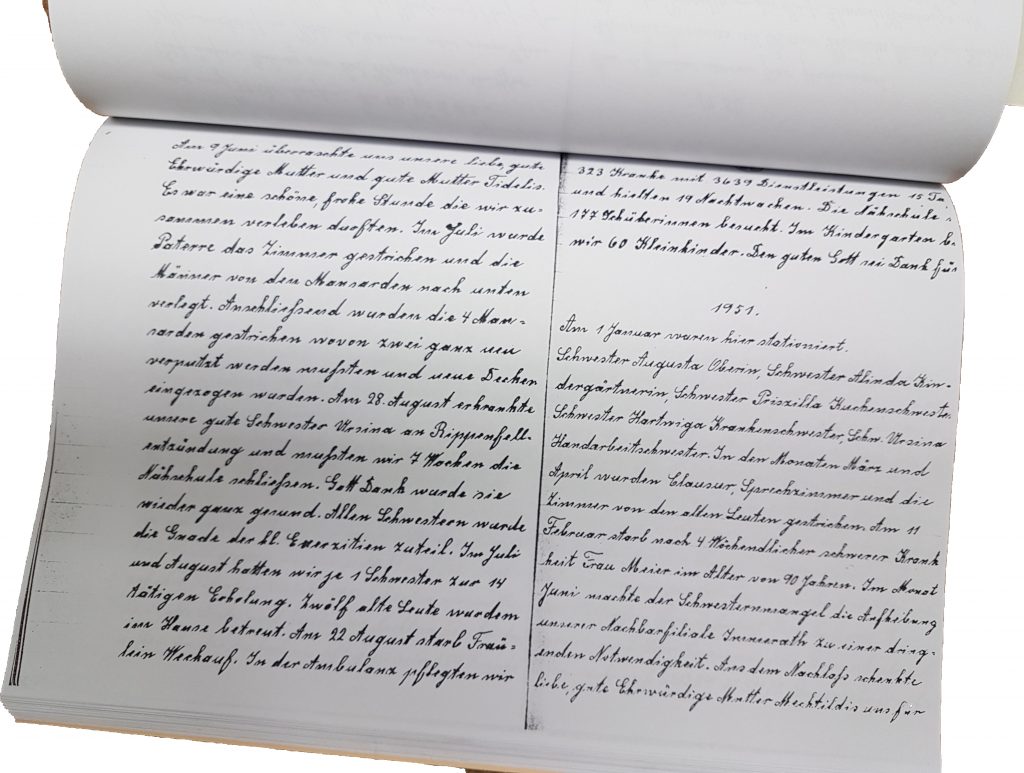 Am 9 Juni überraschte uns unsere liebe, gute
Ehrwürdige Mutter und gute Mutter Fidelis.
Es war eine schöne, frohe Stunde die wir zu-
sammen verleben durften. Im Juli wurde
Paterre das Zimmer gestrichen und die
Männer von den Mansarden nach unten
verlegt. Anschliessend wurden die 4 Man-
sarden gestrichen wovon zwei ganz neu
verputzt werden mußten und neue Decken
eingezogen wurden. Am 28. August erkrankte
unsere gute Schwester Ursina an Rippenfell-
entzündung und mußten wir 7 Wochen die
Nähschule schließen. Gott Dank wurde sie
wieder ganz gesund. Allen Schwestern wurde
die Gnade der hl. Exerzitien zuteil. Im Juli
und August hatten wir je 1 Schwester zur 14
tätigen Erholung. Zwölf alte Leute wurden
im Hause betreut. Am 22 August starb Fräu-
lein Weckauf. In der Ambulanz pflegten wir
323 Kranke mit 3639 Dienstleistungen 15 Ta
und hielten 19 Nachtwachen. Die Nähschule
177 Schülerinnen besucht. Im Kindergarten b.
wir 60 Kleinkinder. Den guten Gott sei Dank für
1951.
Am 1 Januar waren hier stationiert.
Schwester Augusta Oberin, Schwester Alinda Kin-
dergärtnerin, Schwester Priszilla Küchenschweste
Schwester Hartwiga Krankenschwester, Schw. Ursina
Handarbeitschwester. In den Monaten März und
April wurden Clausur, Sprechzimmer und die
Zimmer von den alten Leuten gestrichen. Am 11
Februar starb nach 4 Wöchendlicher schwerer Krank
heit Frau Meier im Alter von 90 Jahren. Im Monat
Juni machte der Schwesternmangel die Aufhebung
unserer Nachbarfiliale Immerath zu einer dring-
enden Notwendigkeit. Aus dem Nachlaß schenkte
liebe, gute Ehrwürdige Mutter Mechtildis uns für